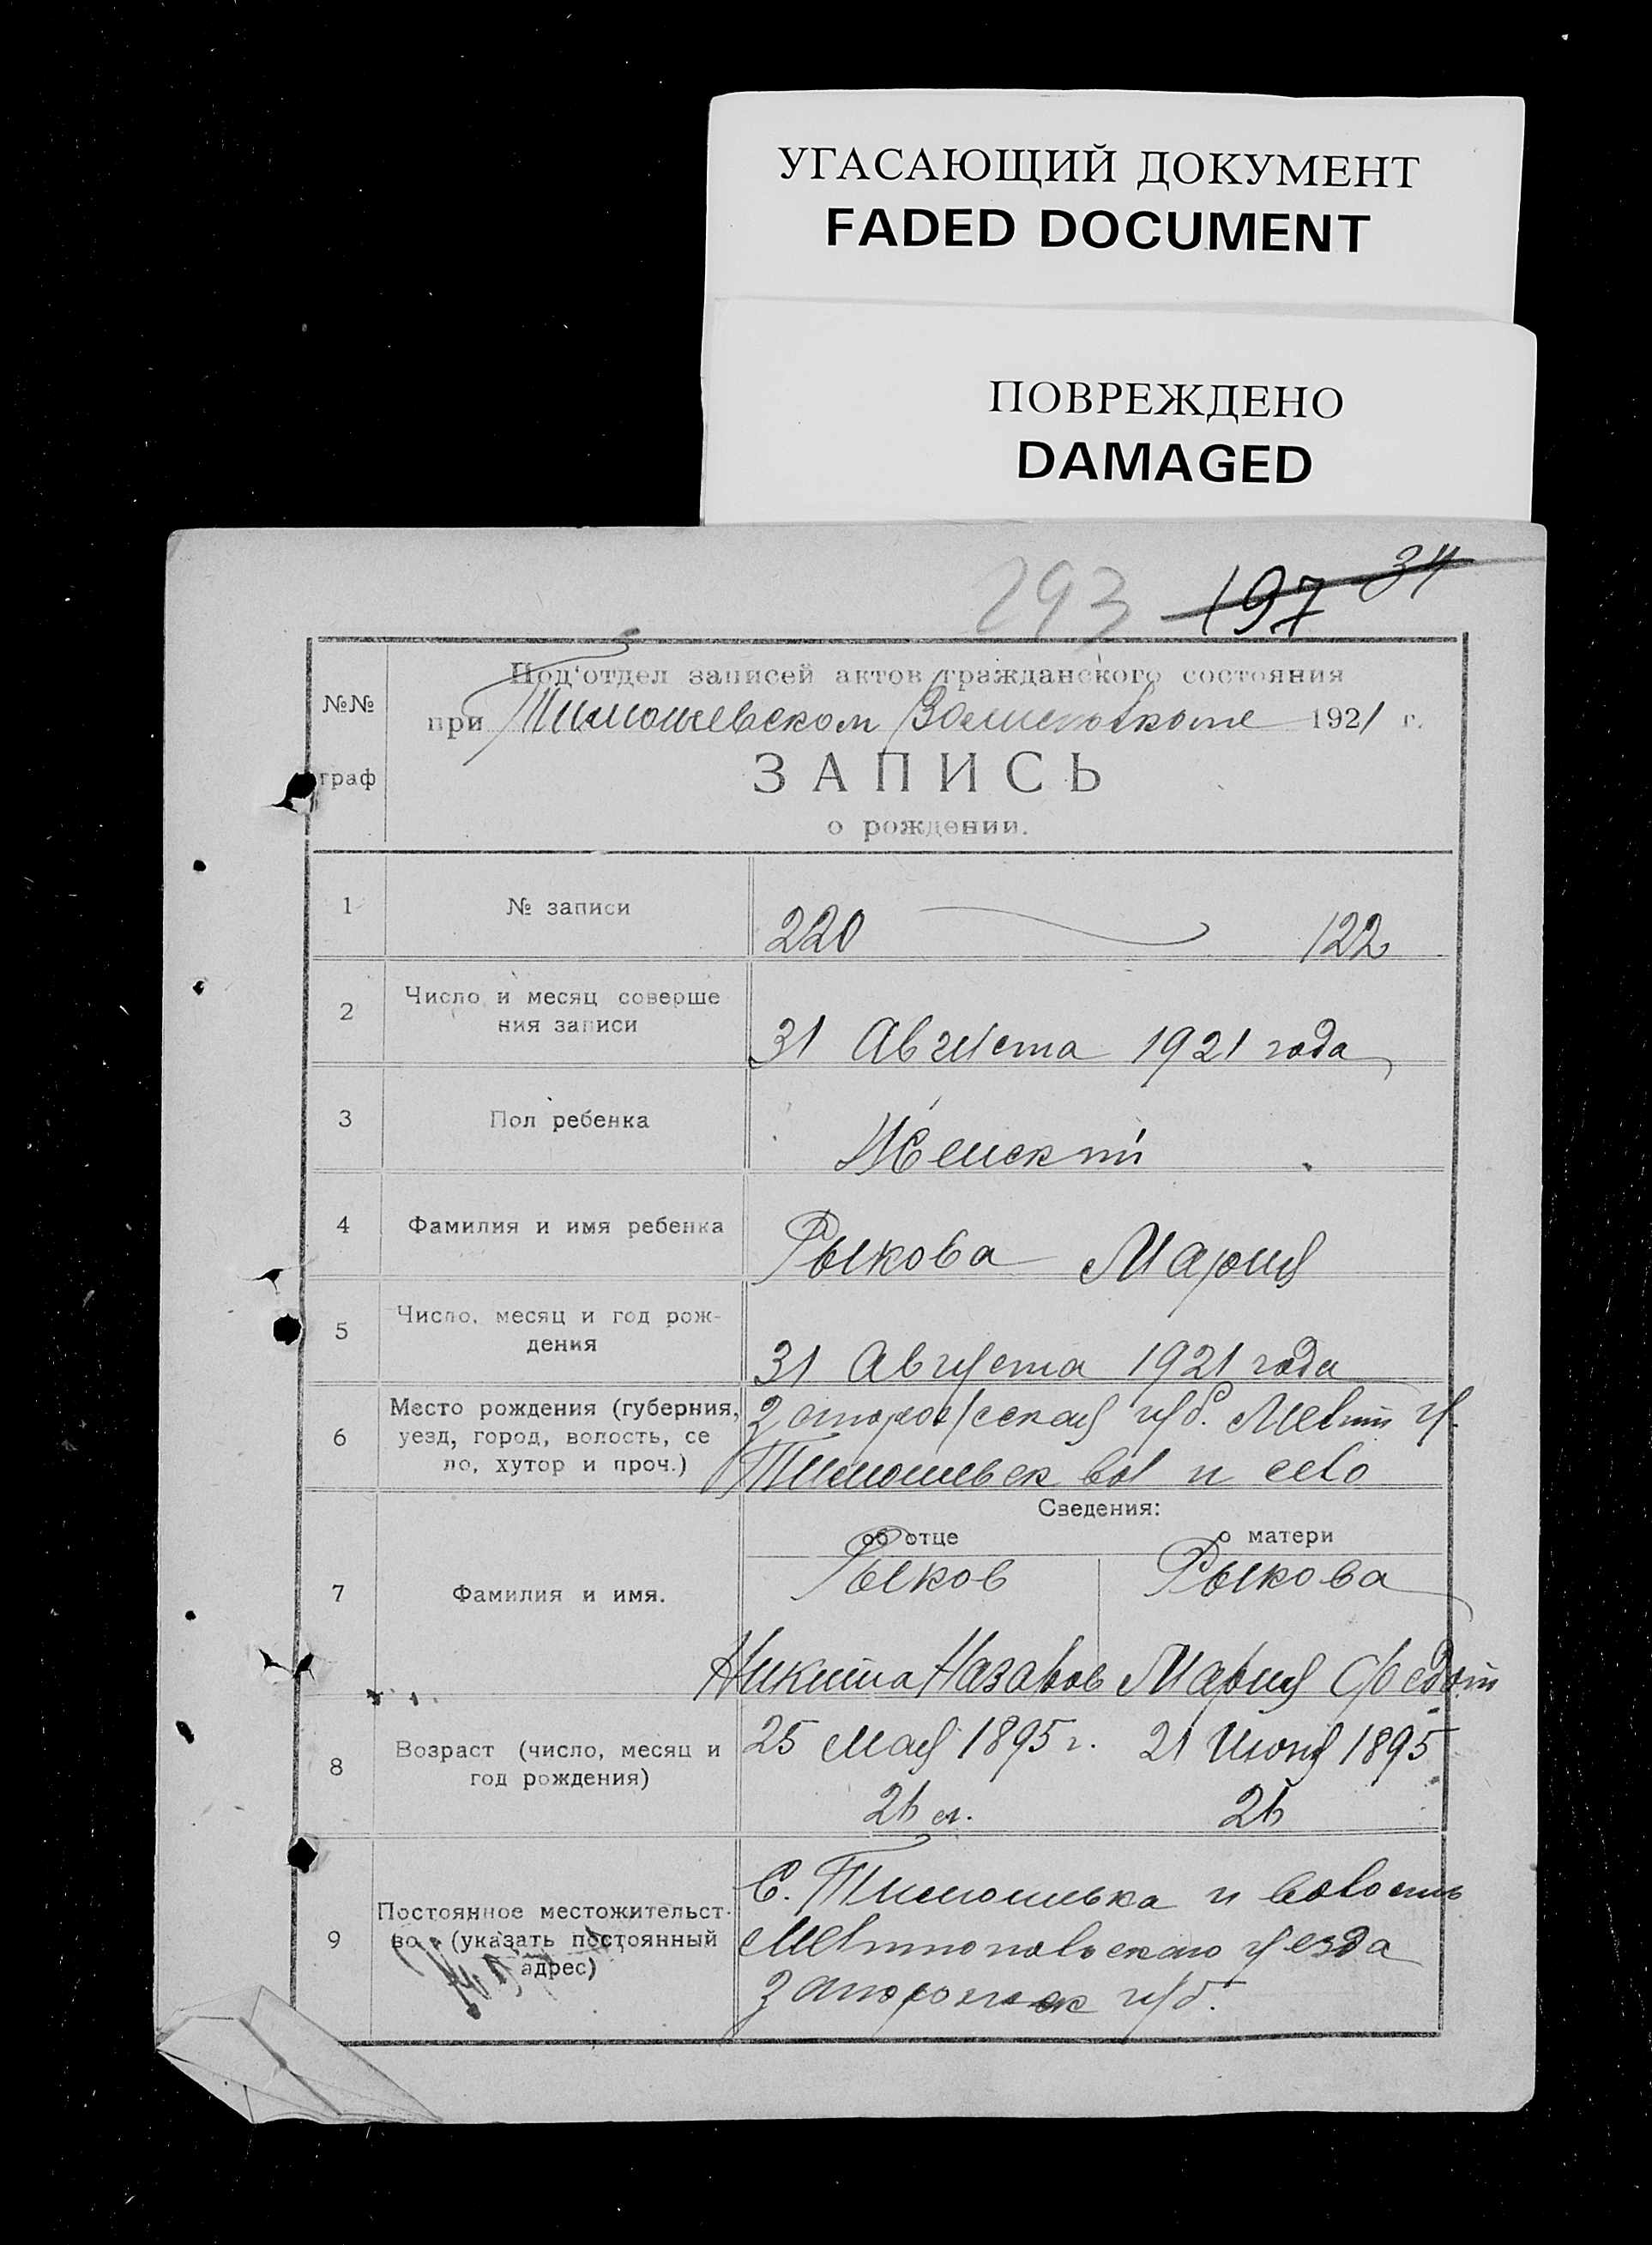 УГАСАЮЩИЙ ДОКУМЕНТ
FADED DOCUMENT
ПОВРЕЖДЕНО
DAMAGED
293 197 34
№№
граф
Под‘отдел записей актов гражданского состояния
при Тимошевском Волисполкоме 1921 г.
ЗАПИСЬ
о рождении.
1 № записи 220 122
2 Число и месяц соверше
ния записи 31 Августа 1921 года
3 Пол ребенка Женский
4 Фамилия и имя ребенка Рыкова Мария
5 Число, месяц и год рож-
дения 31 Августа 1921 года
6 Место рождения (губерния,
уезд, город, волость, се
ло, хутор и проч.)
губ. Мелит у.
Тимошевск вол и село
Сведения:
об отце о матери
7 Фамилия и имя. Рыков Рыкова
Никита Назаров Мария Федот
8 Возраст (число, месяц и
год рождения)
25 мая 1895 г. 21 Июня 1895
26 л. 26
9 Постоянное местожительст-
во (указать постоянный
адрес)
С. Тимошивка и волость
Мелитопольского уезда
губ.